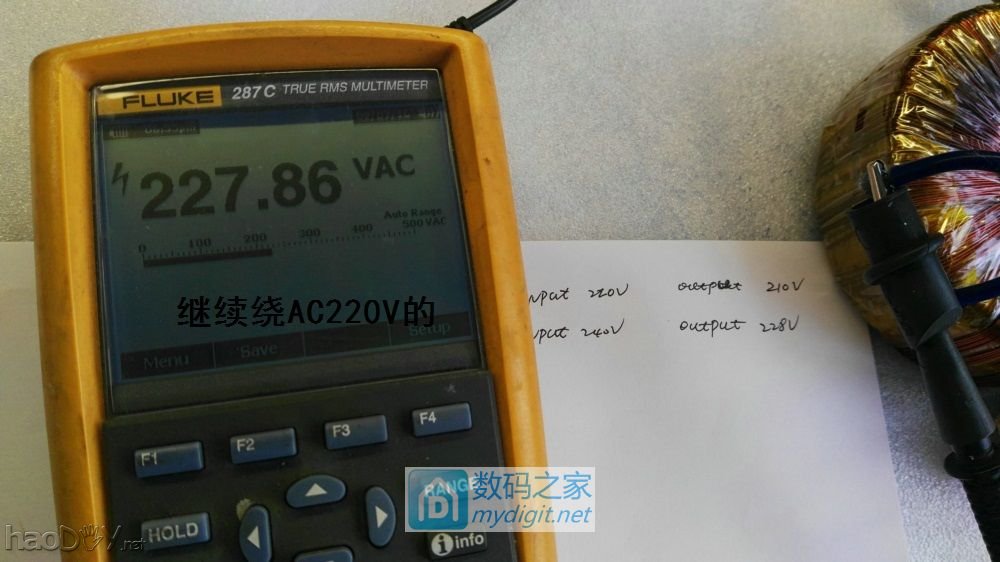 FLUKE 287C TRUE RMS MULTIMETER
227.86 VAC
Auto Range
0 100 200 300 400 500 VAC
继续绕AC220V的
Menu Save Setup
F1 F2 F3 F4
HOLD
RANGE
info
nput 220V output 210V
put 240V output 228V
数码之家
mydigit.net
haoDIY.net